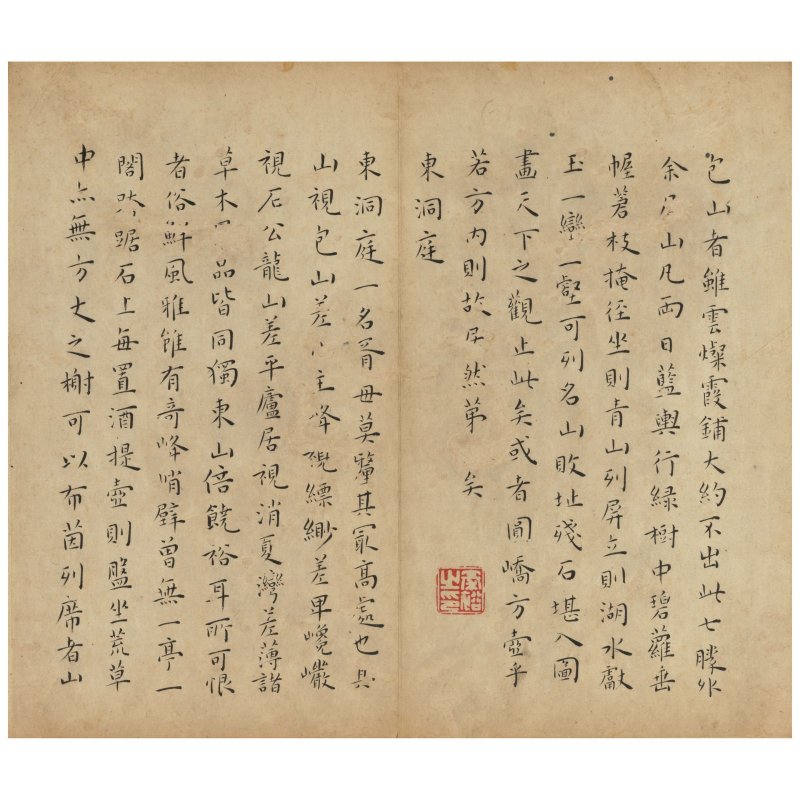 包山者雖雲燦霞鋪大約不出此七勝外
余居山凡兩日藍輿行綠樹中碧蘿垂
幄蒼枝掩徑坐則青山列屏立則湖水獻
玉一巒一壑可列名山敗址殘石堪入圖
畫天下之觀止此矣或者圓嶠方壺乎
若方內則故居然第 矣
東洞庭
東洞庭一名胥母莫釐其最高處也其
山視包山差 主峰視縹緲差卑巉巖
視石公龍山差平廬居視消夏灣差薄諸
草木 品皆同獨東山倍饒裕耳所可恨
者俗鮮風雅雖有奇峰峭壁曾無一亭一
閣 踞石上每置酒提壺則盤坐荒草
中亦無方丈之榭可以布茵列席者山